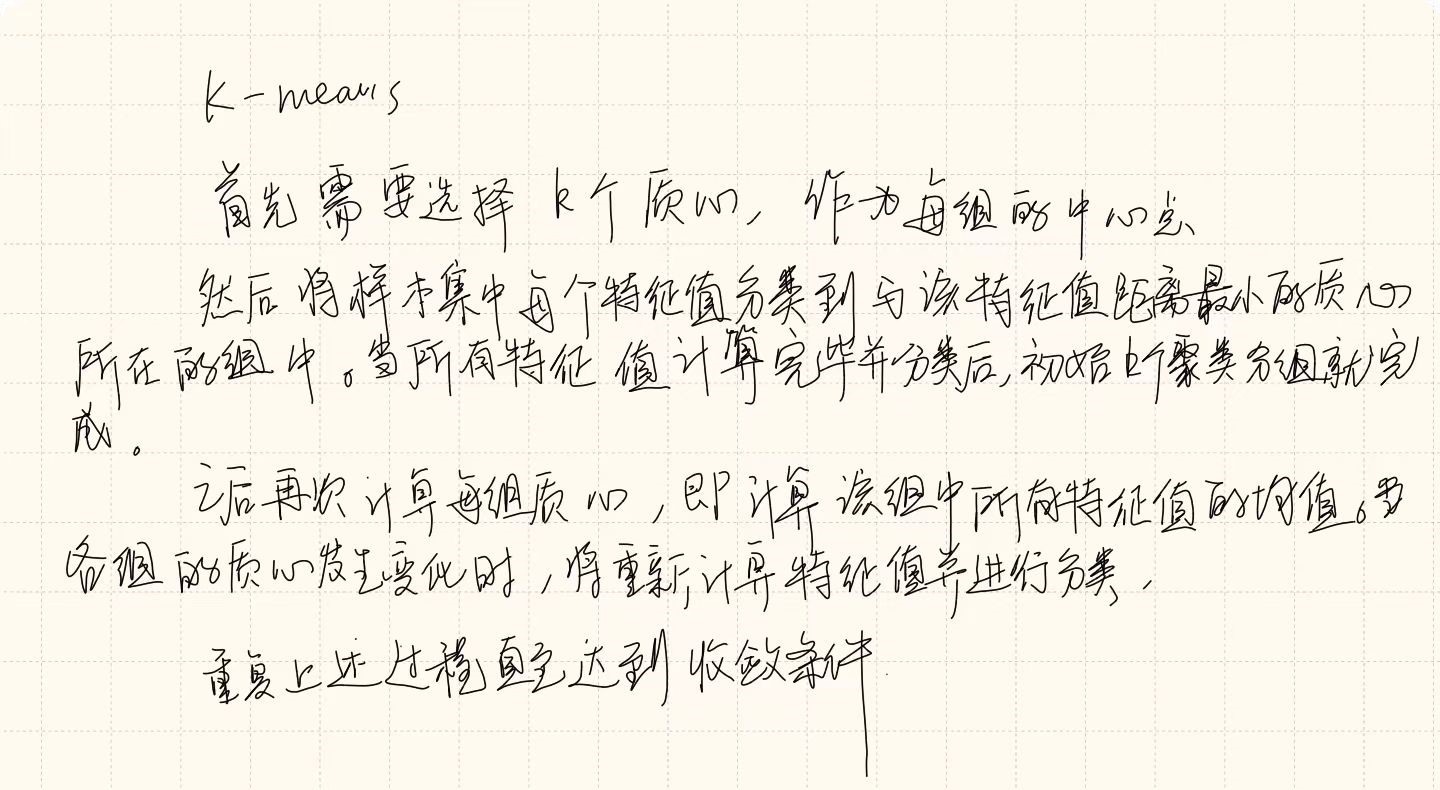 K-means
首先需要选择 k个质心, 作为每组的中心点
然后将样本集中每个特征值分类到与该特征值距离最小的质心
所在的组中。当所有特征值计算完毕并分类后,初始k个聚类分组就完
成。
之后再次计算每组质心,即计算该组中所有特征值的均值。当
各组的质心发生变化时,将重新计算特征值并进行分类,
重复上述过程直至达到收敛条件